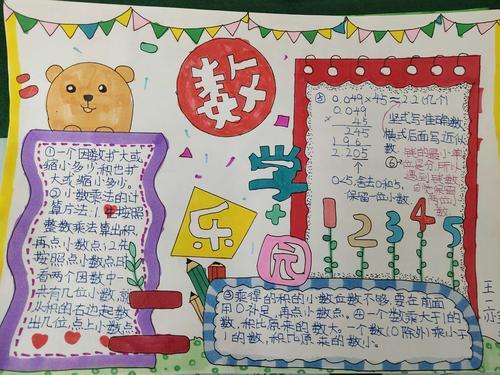 数
学
乐
园
①一个因数扩大或
缩小多少积也扩
大或缩小多少。
②小数乘法的计
算方法:1先按照
整数乘法算出积,
再点小数点;2先
按照点小数点时,
看两个因数中一
共有几位小数,就
从积的右边起数
出几位,点上小数点
③乘得的积的小数位数不够,要在前面
用0补足,再点小数点。④一个数乘大于1的
数,积比原来的数大。一个数(0除外)乘小于
1的数,积比原来的数小。
⑤ 0.049×45≈2.2(亿个)
0.049
× 45
245
196
2.205
0~5,舍去0和5,
保留一位小数.
竖式写准确数
横式后面写近似
数.
⑥钱的最小单
位是分,所以
1 2 3 4 5